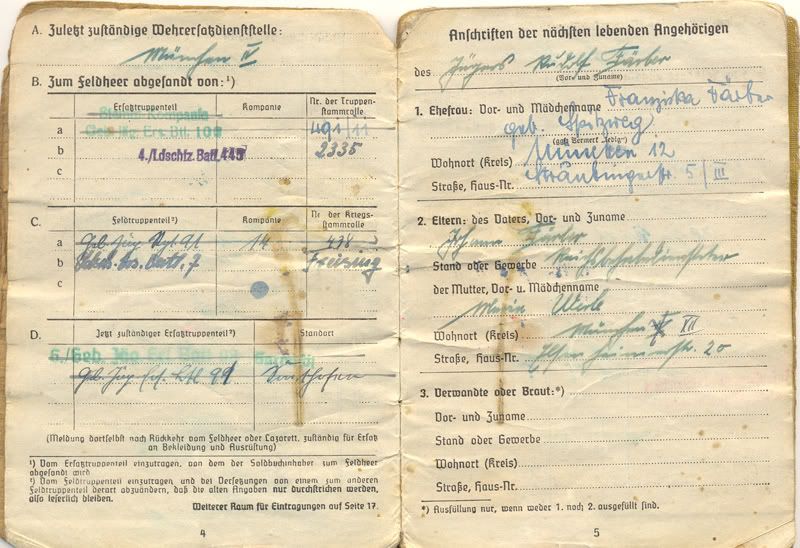 A. Zuletzt zuständige Wehrersatzdienststelle:
München IV
B. Zum Feldheer abgesandt von:¹)
Ersatztruppenteil Kompanie Nr. der Truppen-
stammrolle
Stamm-Kompanie
a 491/11
b 4./Ldschtz. Batl. 445 2335
c
C. Feldtruppenteil²) Kompanie Nr. der Kriegs-
stammrolle
a Geb. Jäg. Rgt. 91 14
b Freising
c
D. Jetzt zuständiger Ersatztruppenteil²) Standort
Geb. Jäg. 99 Sonthofen
(Meldung dortselbst nach Rückkehr vom Feldheer oder Lazarett, zuständig für Ersatz
an Bekleidung und Ausrüstung)
¹) Vom Ersatztruppenteil einzutragen, von dem der Soldbuchinhaber zum Feldheer
abgesandt wird.
²) Vom Feldtruppenteil einzutragen und bei Versetzungen von einem zum anderen
Feldtruppenteil derart abzuändern, daß die alten Angaben nur durchstrichen werden,
also leserlich bleiben.
Weiterer Raum für Eintragungen auf Seite 17.
4
Anschriften der nächsten lebenden Angehörigen
des Jägers Rudolf Färber
(Vor- und Zuname)
1. Ehefrau: Vor- und Mädchenname Franziska Färber
geb. Spitzweg
(ggf. Vermerk „ledig")
Wohnort (Kreis) München 12
Straße, Haus-Nr. 5/III
2. Eltern: des Vaters, Vor- und Zuname
Johann Färber
Stand oder Gewerbe
der Mutter, Vor- u. Mädchenname
Maria
Wohnort (Kreis) München VII
Straße, Haus-Nr. 20
3. Verwandte oder Braut:*)
Vor- und Zuname
Stand oder Gewerbe
Wohnort (Kreis)
Straße, Haus-Nr.
*) Ausfüllung nur, wenn weder 1. noch 2. ausgefüllt sind.
5